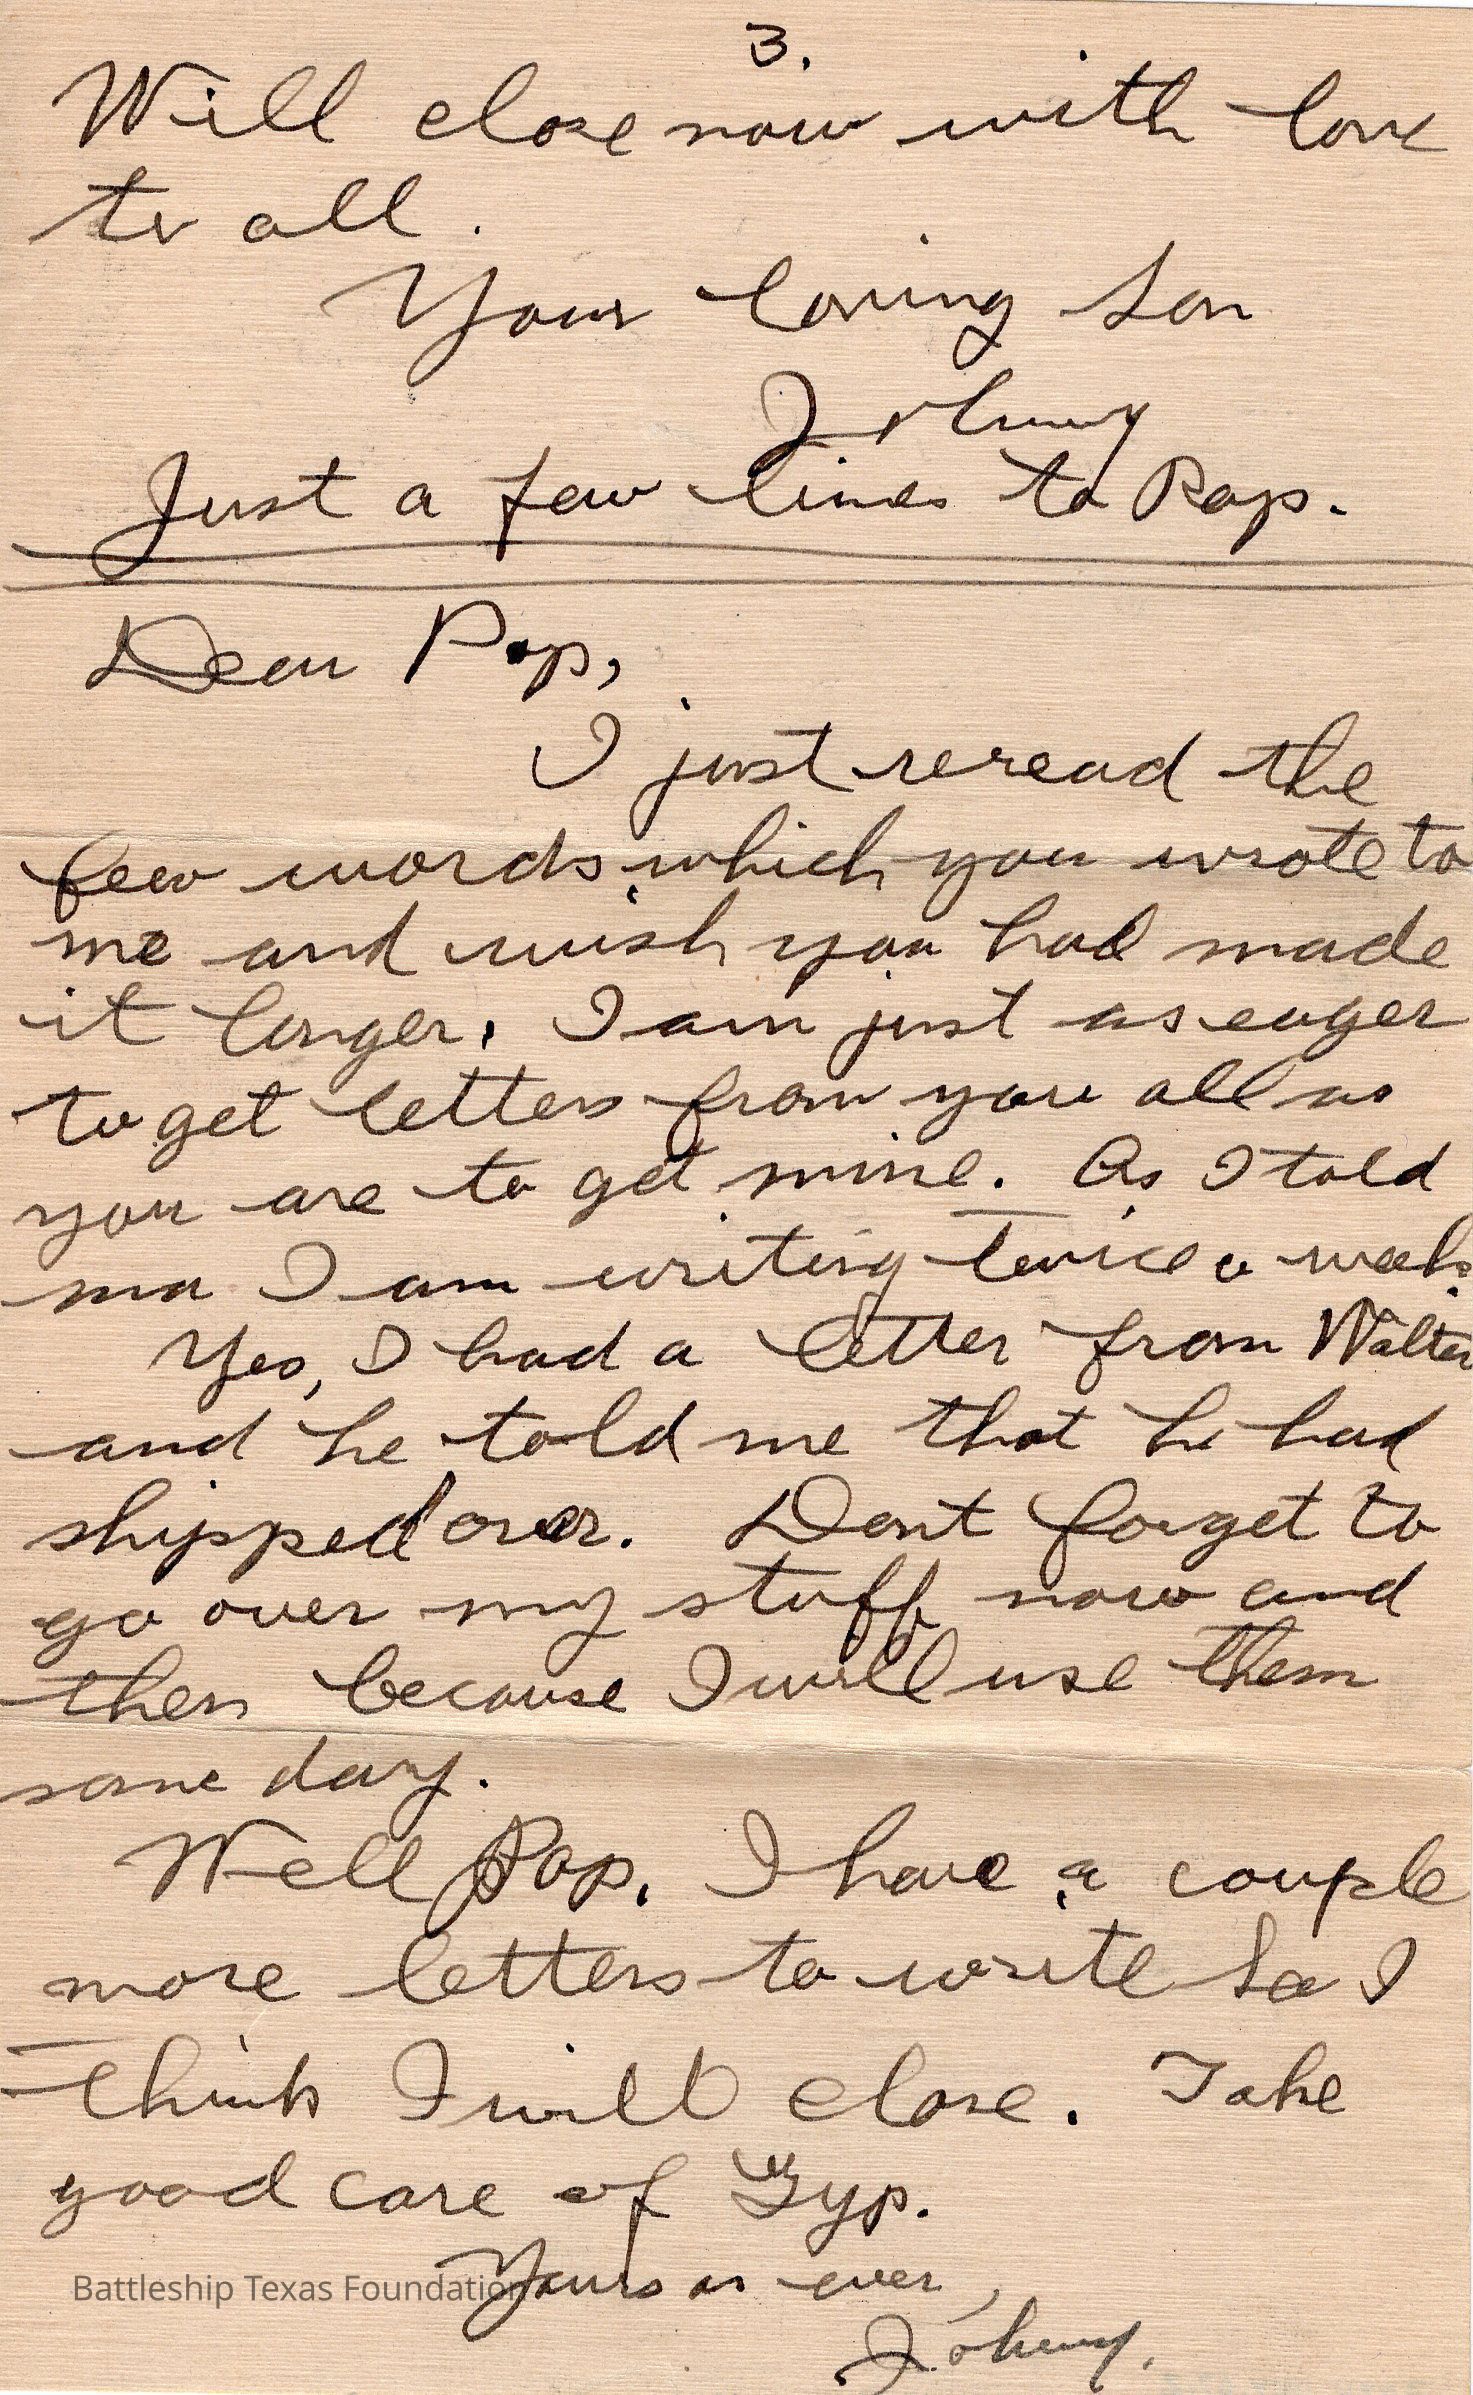 3.
Will close now with love
to all.
Your loving Son
Johnny
Just a few lines to Pop.
Dear Pop,
I just reread the
few words, which you wrote to
me and wish you had made
it longer. I am just as eager
to get letters from you all as
you are to get mine. As I told
ma I am writing twice a week.
Yes, I had a letter from Walter
and he told me that he had
shipped over. Dont forget to
go over my stuff now and
then because I will use them
some day.
Well Pop, I have a couple
more letters to write so I
think I will close. Take
good care of Gyp.
Yours as ever,
Johnny.
Battleship Texas Foundation